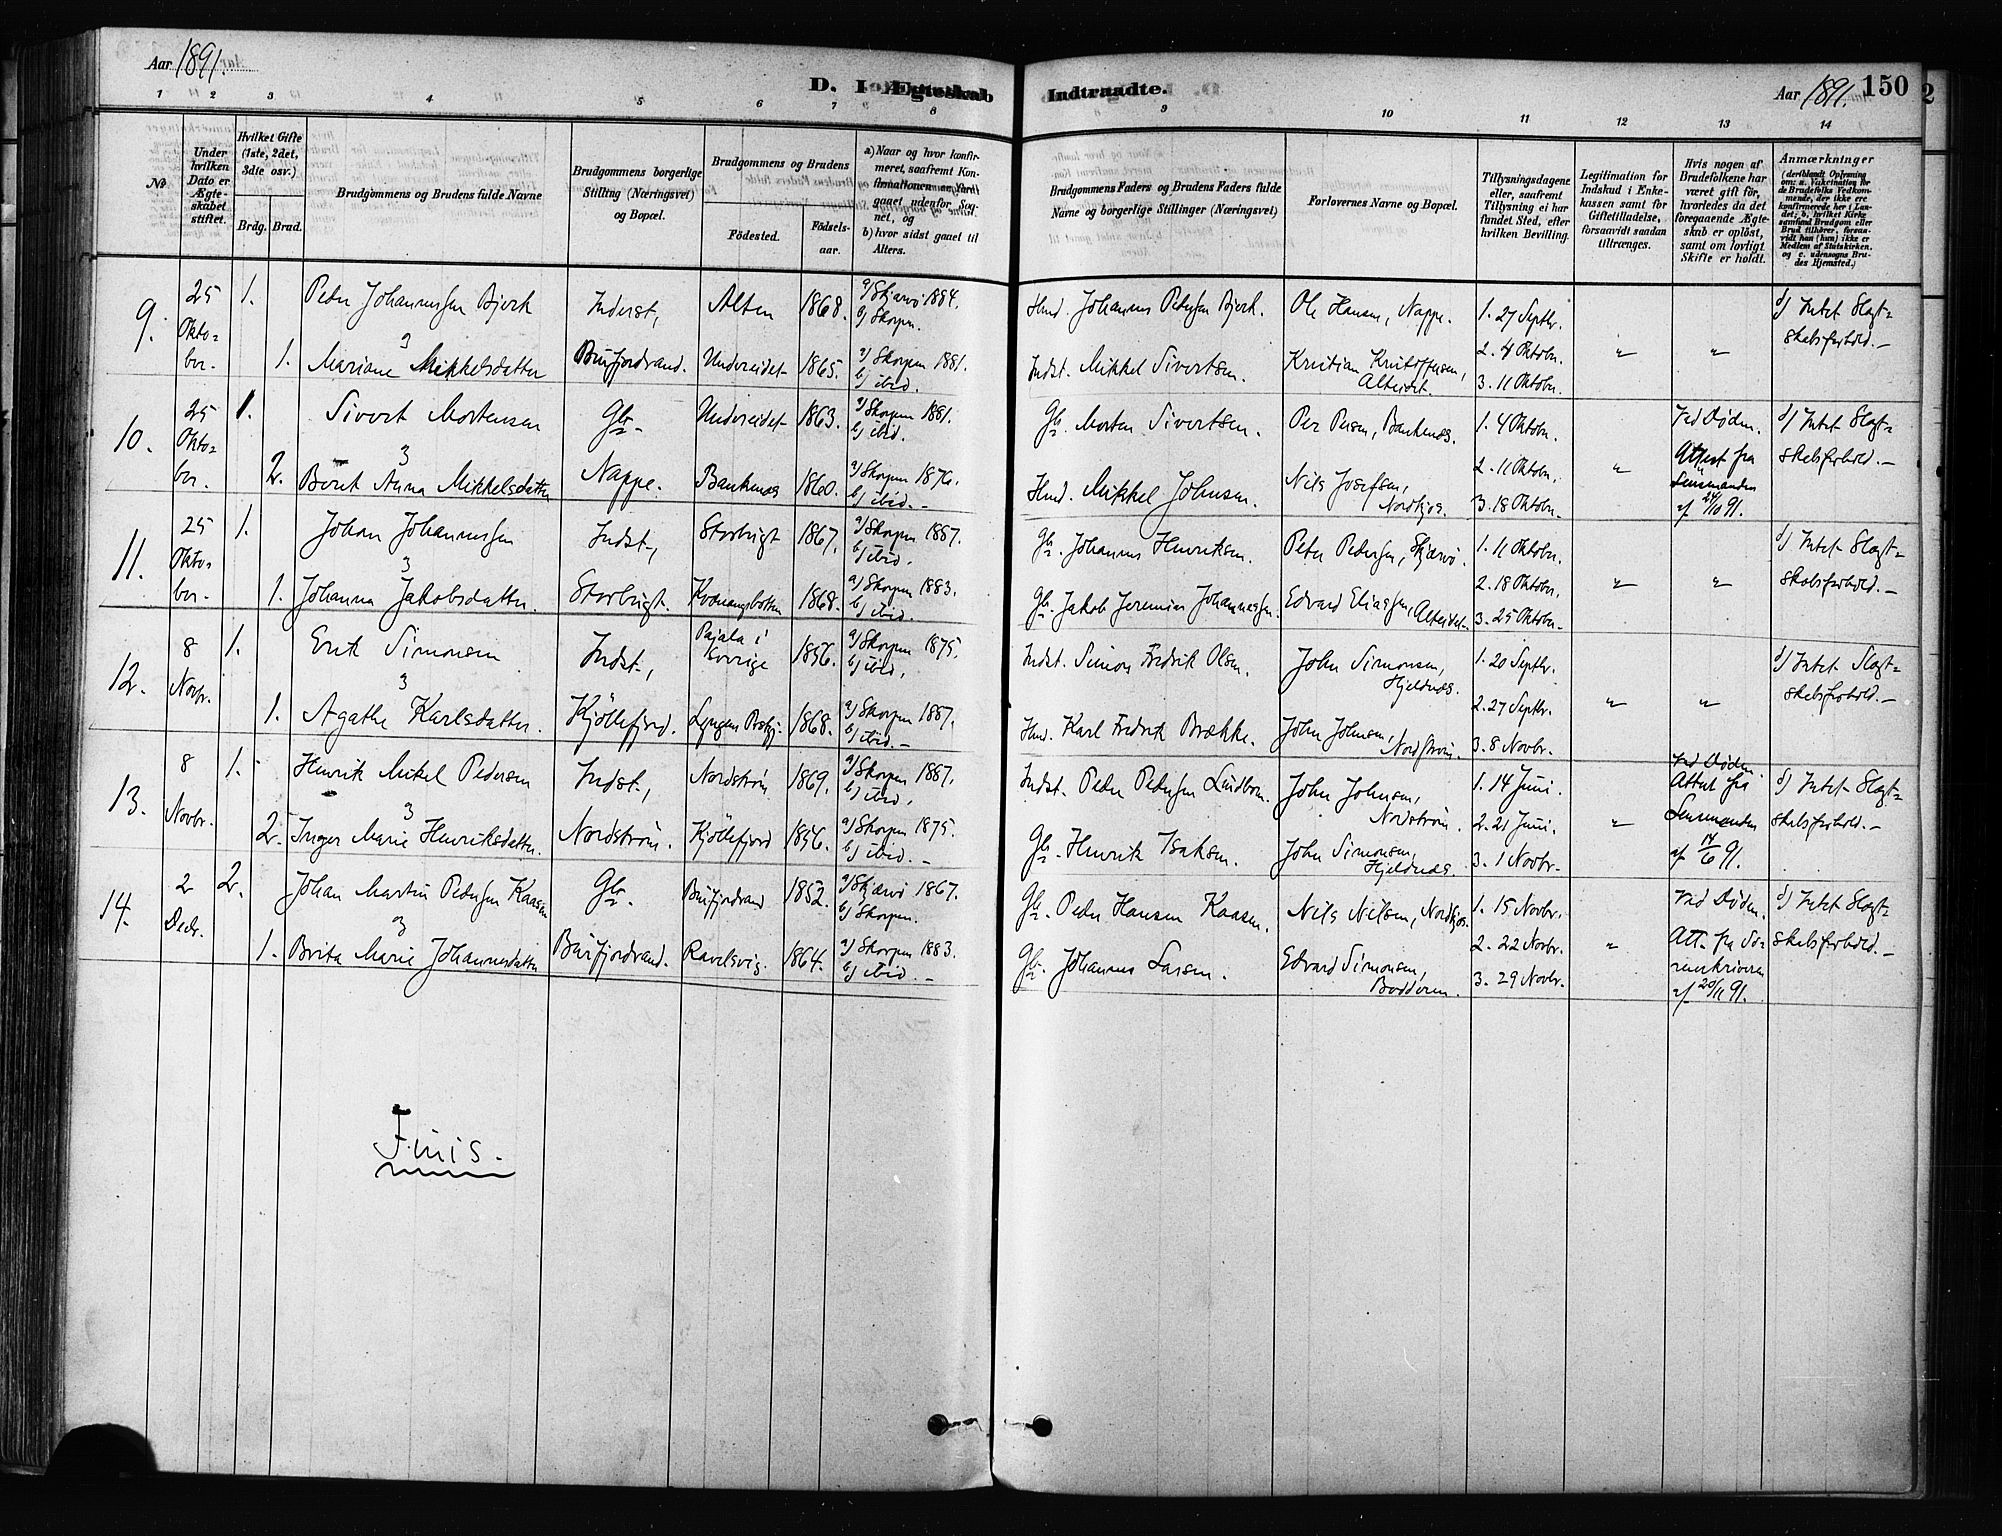 Aar 1891.
D. I Ægteskab Indtraadte.
Aar 1891. 150
1 2 3 4 5 6 7 8 9 10 11 12 13 14
No
Under hvilken Dato er Ægteskabet stiftet.
Hvilket Gifte (1ste, 2det, 3die osv.)
Brdg. Brud.
Brudgommens og Brudens fulde Navne
Brudgommens borgerlige Stilling (Næringsvei) og Bopæl.
Brudgommens og Brudens
Fødested. Fødselsaar.
a) Naar og hvor konfirmeret, saafremt Konfirmationen er foregaaet udenfor Sognet, og
b) hvor sidst gaaet til Alters.
Brudgommens Faders og Brudens Faders fulde Navne og borgerlige Stillinger (Næringsvei)
Forlovernes Navne og Bopæl.
Tillysningsdagene eller, saafremt Tillysning ei har fundet Sted, efter hvilken Bevilling.
Legitimation for Indskud i Enkekassen samt for Giftetilladelse, forsaavidt saadan tiltrænges.
Hvis nogen af Brudefolkene har været gift før, hvorledes da det foregaaende Ægteskab er opløst, samt om lovligt Skifte er holdt.
Anmærkninger (deriblandt Oplysning om: a. Vakcination for de Brudefolks Vedkommende, der ikke ere konfirmerede her i Landet; b. hvilket Kirkesamfund Brudgom eller Brud tilhører, forsaavidt han (hun) ikke er Medlem af Statskirken, og c. udensogns Brudes Hjemsted.)
9. 25 Oktober. 1. Peder Johannessen Bjerk Inderst, Alten 1868. a) Skjærvø 1884. b) Skorpen. Hmd. Johannes Pedersen Bjerk. Ole Hansen, Nappe. 1. 27 Septbr. d) Intet Slægtskabsforhold.
1. Mariane Mikkelsdatter Burfjordvand. Undereidet 1865. a) Skorpen 1881. b) ibid. Indst. Mikkel Sivertsen. Kristian Kristoffersen, Alteidet. 2. 4 Oktobr. 3. 11 Oktobr. " "
10. 25 Oktober. 1. Sivert Mortensen Gbr. Undereidet 1863. a) Skorpen 1881. b) ibid. Gbr. Morten Sivertsen. Per Persen, Bankenæs. 1. 4 Oktobr. Ved Døden. d) Intet Slægtskabsforhold.
2. Beret Anna Mikkelsdatter Nappe. Bankenæs 1860. a) Skorpen 1876. b) ibid. Hmd. Mikkel Johnsen. Nils Josefsen, Nordkjos. 2. 11 Oktobr. 3. 18 Oktobr. " Attest fra Lensmanden af 24/10 91.
11. 25 Oktober. 1. Johan Johannessen Indst., Storbugt 1867. a) Skorpen 1887. b) ibid. Gbr. Johannes Henriksen. Peter Pedersen, Skjærvø. 1. 11 Oktobr. d) Intet Slægtskabsforhold.
1. Johanna Jakobsdatter. Storbugt. Kvænangsbotten 1868. a) Skorpen 1883. b) ibid. Gbr. Jakob Jeremias Johannessen. Edvard Eliassen, Alteidet. 2. 18 Oktobr. 3. 25 Oktobr. " "
12. 8 Novbr. 1. Erik Simonsen Indst., Pajala i Sverrige 1856. a) Skorpen 1875. b) ibid. Indst. Simon Fredrik Olsen. John Simonsen, Hjeldnæs. 1. 20 Septbr. d) Intet Slægtskabsforhold.
1. Agathe Karlsdatter. Kjøllefjord. Lyngens Prstgj. 1868. a) Skorpen 1887. b) ibid. Hmd. Karl Fredrik Brække. John Johnsen, Nordstrøm. 2. 27 Septbr. 3. 8 Novbr. " "
13. 8 Novbr. 1. Henrik Mikel Pedersen Indst., Nordstrøm 1869. a) Skorpen 1887. b) ibid. Indst. Peder Pedersen Lindbom. John Johnsen, Nordstrøm. 1. 14 Juni. Ved Døden. Attest fra d) Intet Slægtskabsforhold.
2. Inger Marie Henriksdatter. Nordstrøm. Kjøllefjord 1856. a) Skorpen 1875. b) ibid. Gbr. Henrik Isaksen. John Simonsen, Hjeldnæs. 2. 21 Juni. 3. 1 Novbr. " Lensmanden af 14/6 91.
14. 2 Decbr. 2. Johan Martin Pedersen Kaasen Gbr. Burfjordvand 1852. a) Skjærvø 1867. b) Skorpen. Gbr. Peder Hansen Kaasen. Nils Nilsen, Nordkjos. 1. 15 Novbr. Ved Døden. d) Intet Slægtskabsforhold.
1. Brita Marie Johannesdatter Burfjordvand. Ravelsvig. 1864. a) Skorpen 1883. b) ibid. Gbr. Johannes Larsen. Edvard Simonsen, Badderen. 2. 22 Novbr. 3. 29 Novbr. " Att. fra Sorenskriveren af 20/11 91.
Finis.